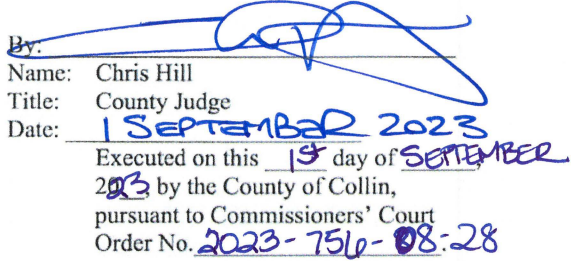 By:
Name: Chris Hill
Title: County Judge
Date: 1 SEPTEMBER 2023
Executed on this 1st day of SEPTEMBER,
2023, by the County of Collin,
pursuant to Commissioners' Court
Order No. 2023-756-08-28